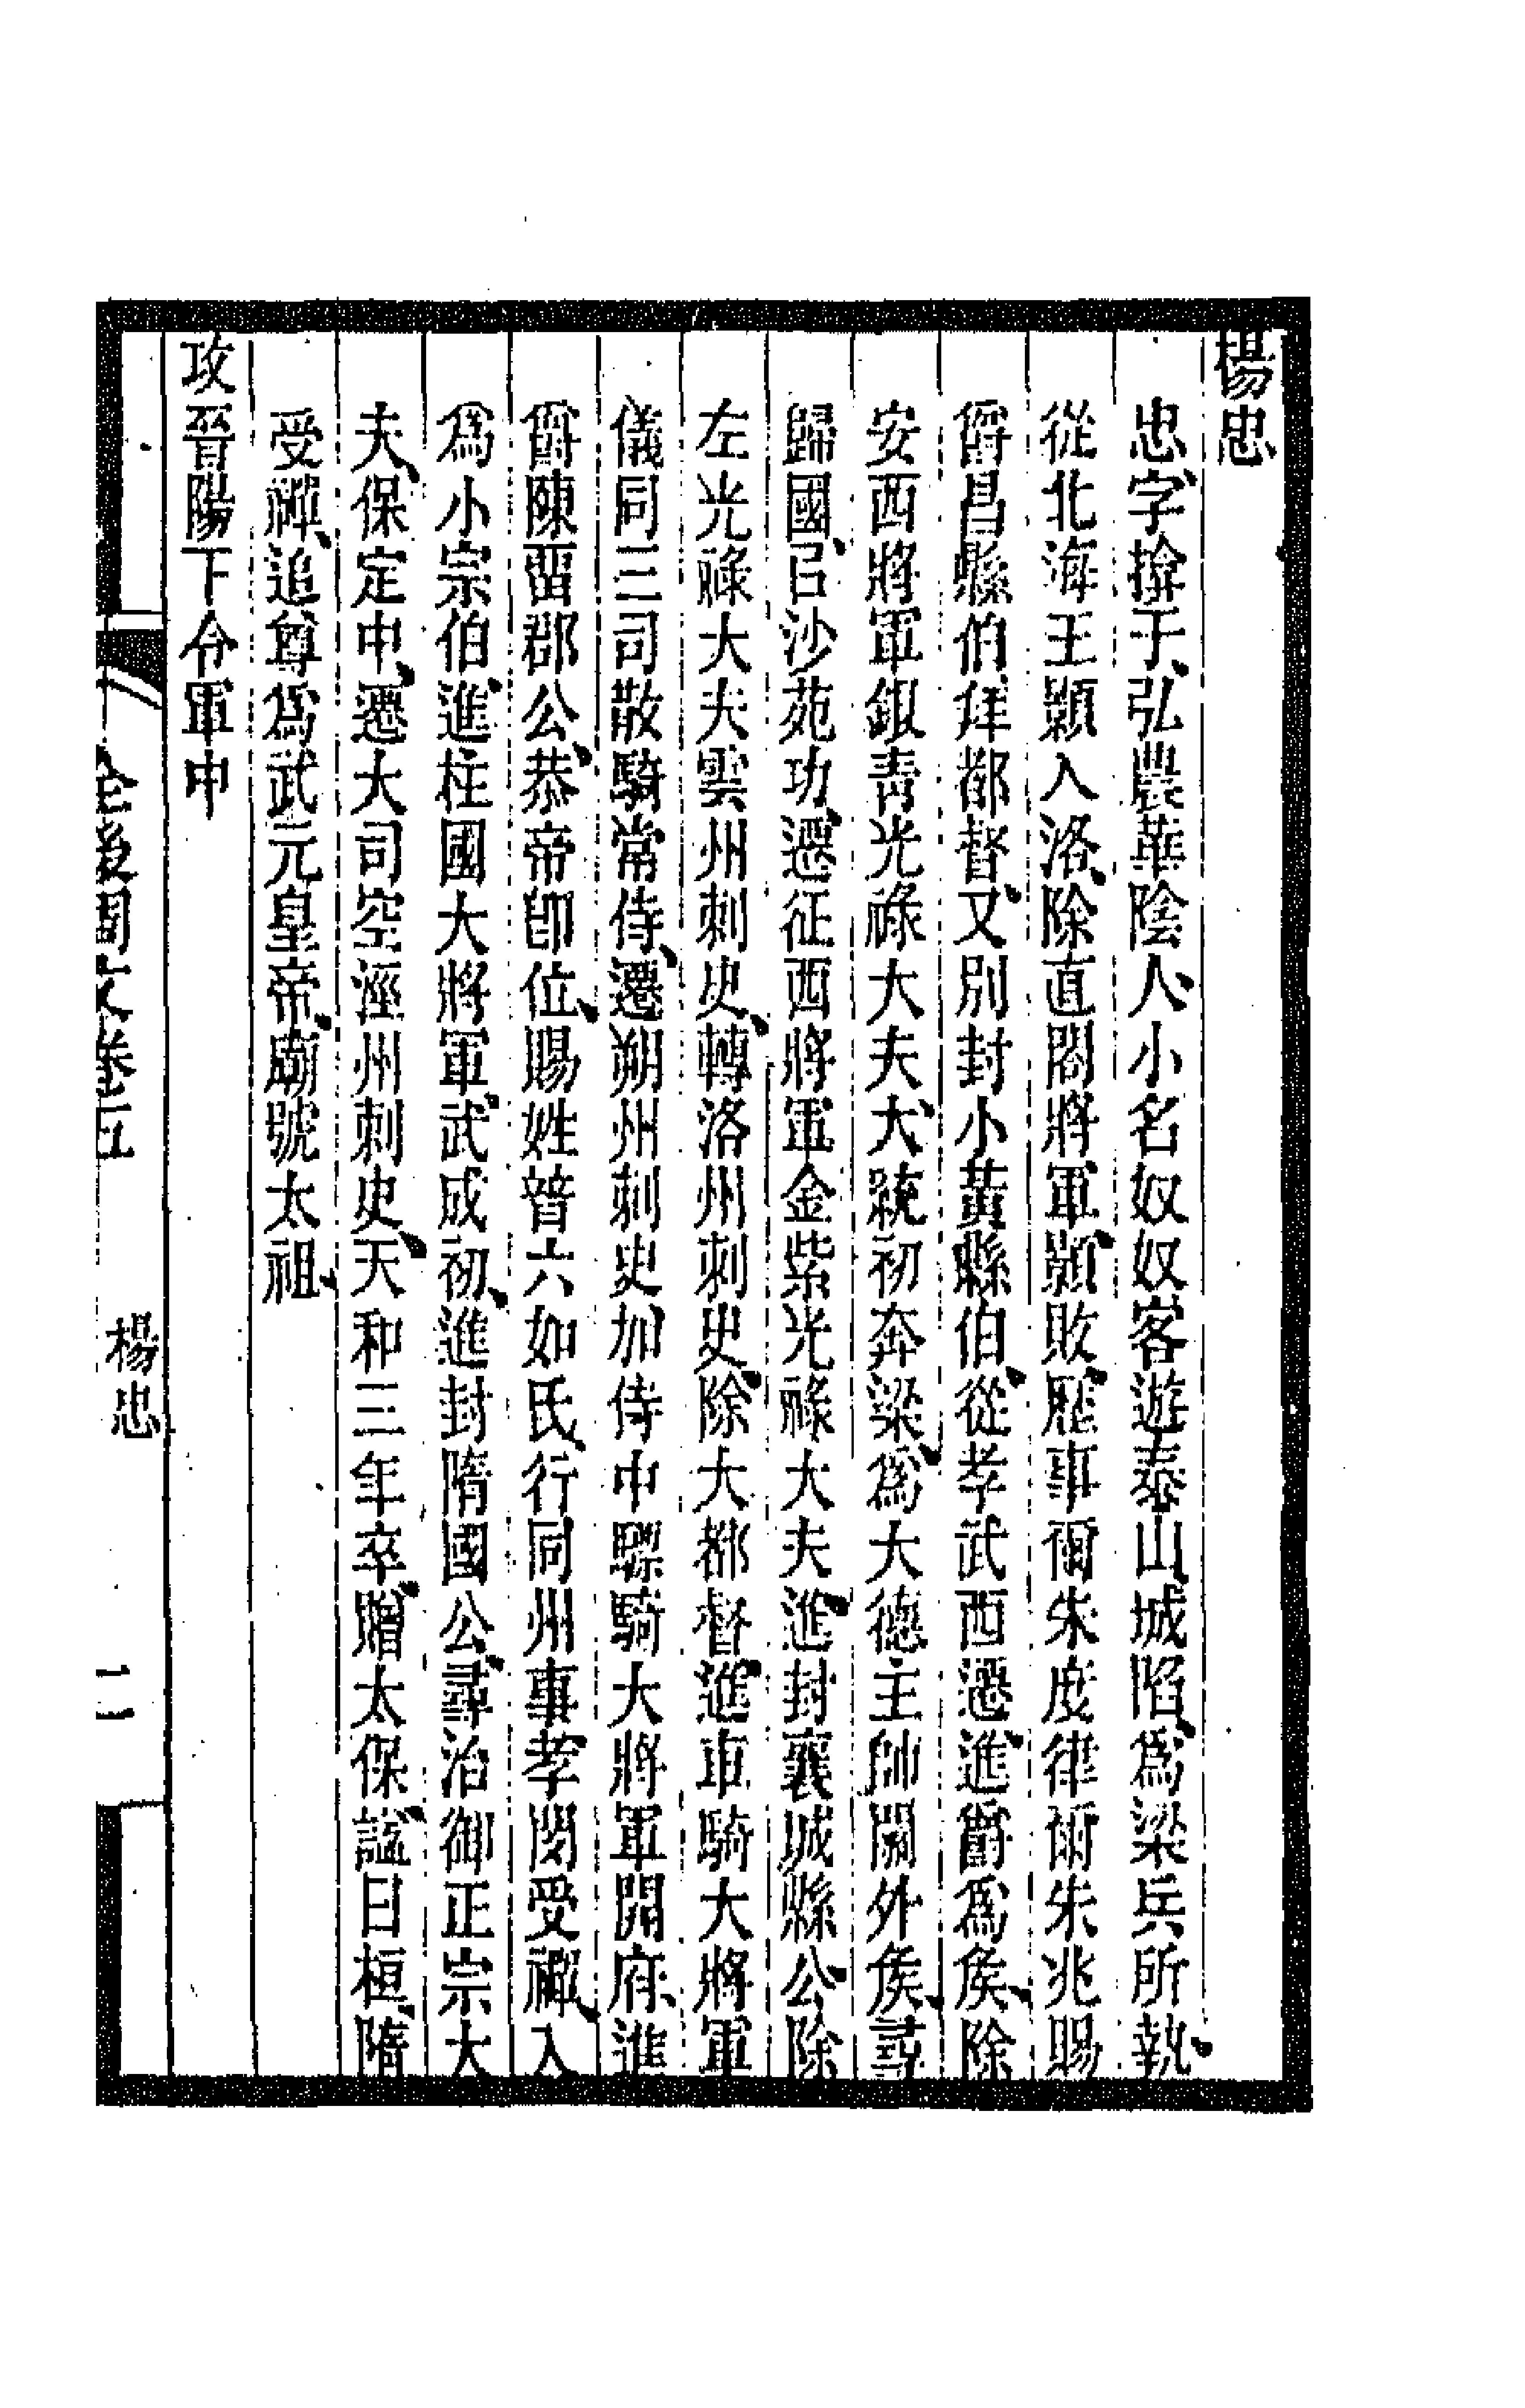 楊忠
忠字揜于弘農華陰人小名奴奴客遊泰山城陷爲梁兵所執
從北海王顥入洛除直閤將軍顥敗歷事爾朱度律爾朱兆賜
爵昌縣伯拜都督又別封小黃縣伯從孝武西遷進爵爲矦除
安西將軍銀靑光祿大夫大統初奔梁爲大德主帥關外矦尋
歸國㠯沙苑功遷征西將軍金紫光祿大夫進封襄城縣公除
左光祿大夫雲州刺史轉洛州刺史除大都督進車騎大將軍
儀同三司散騎常侍遷朔州刺史加侍中驃騎大將軍開府進
爵陳畱郡公恭帝卽位賜姓普六如氏行同州事孝閔受禪入
爲小宗伯進柱國大將軍武成初進封隋國公尋治御正宗大
夫保定中遷大司空涇州刺史天和三年卒贈太保謚曰桓隋
受禪追尊爲武元皇帝廟號太祖
攻晉陽下令軍中
全後周文卷五
楊忠
二